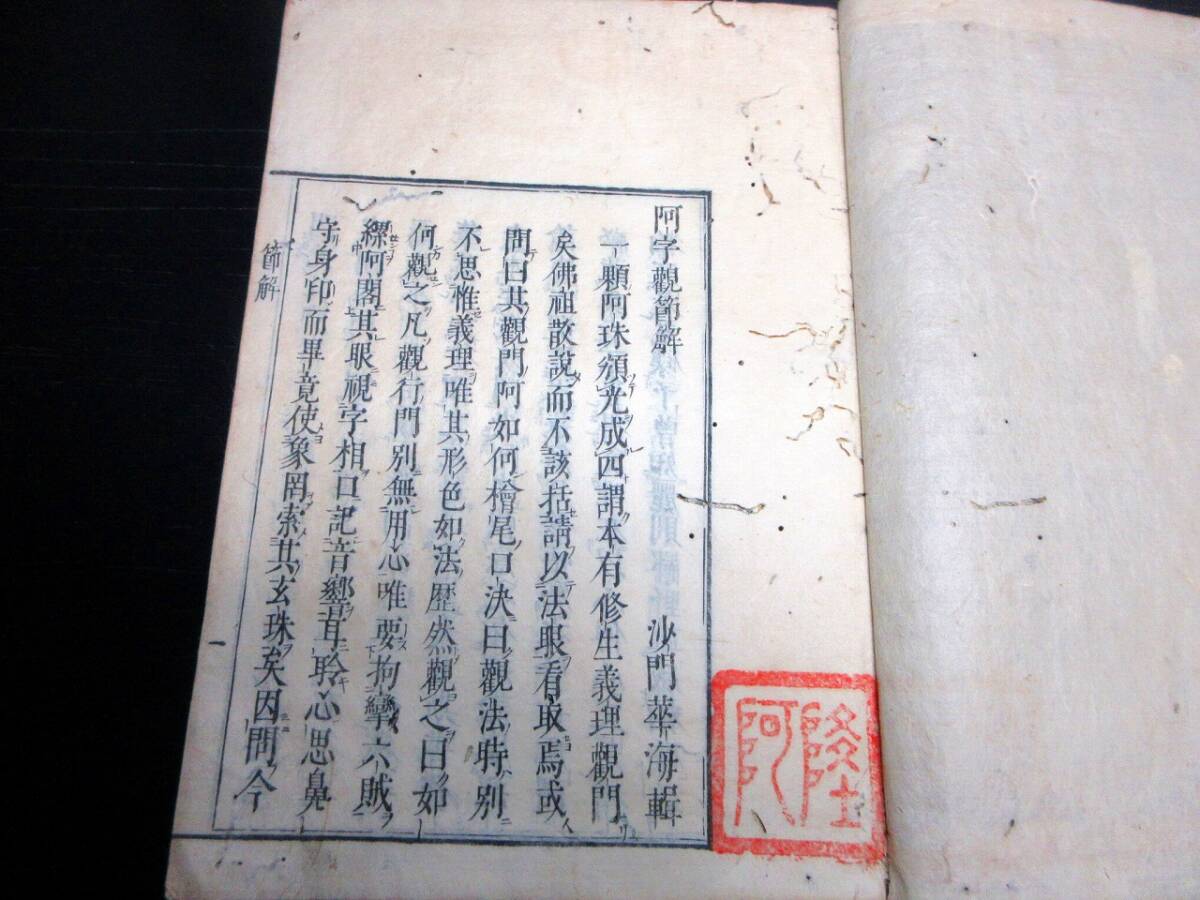 阿字觀節解 沙門華海輯
一顆阿珠頒光成四謂本有修生義理觀門
矣佛祖散說而不該括請以法眼看取焉或
問曰其觀門阿如何檜尾口決曰觀法時別
不思惟義理唯其形色如法歷然觀之曰如
何觀之凡觀行門別無用心唯要拘攣六賊
縲阿閣其眼視字相口記音響耳聆心思鼻
守身印而畢竟使象罔索其玄珠矣因問今
節解
一
陸
阿